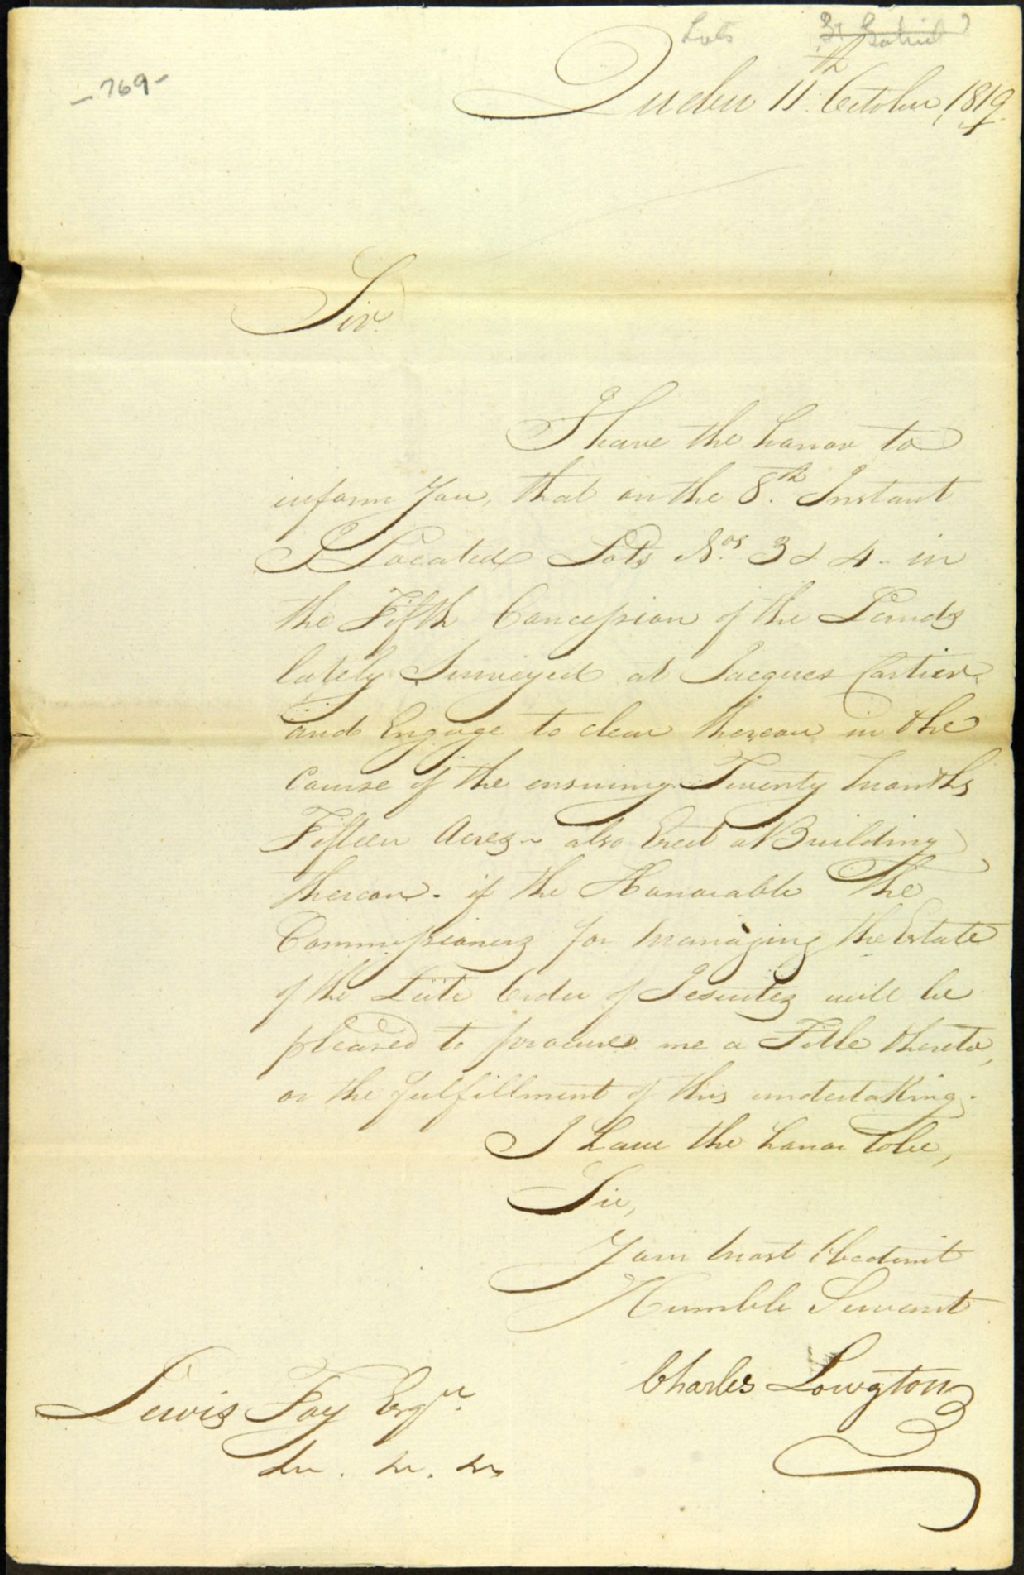 Lots St Gabriel
- 769 -
Quebec 11th October 1819
Sir.
I have the honor to
inform You, that on the 8th Instant
I Located Lots Nos 3 & 4 - in
the Fifth Concession of the Lands
lately Surveyed at Jacques Cartier
and Engage to clear thereon in the
Course of the ensuing Twenty months
Fifteen Acres - also Erect a Building
thereon - if the Honorable The
Commissioners for managing the Estate
of the Late Order of Jesuites will be
pleased to procure me a Title thereto,
on the fulfillment of this undertaking.
I have the honor to be,
Sir,
Your most Obedient
Humble Servant
Charles Lowgton
Lewis Foy Esqr
&c. &c. &c